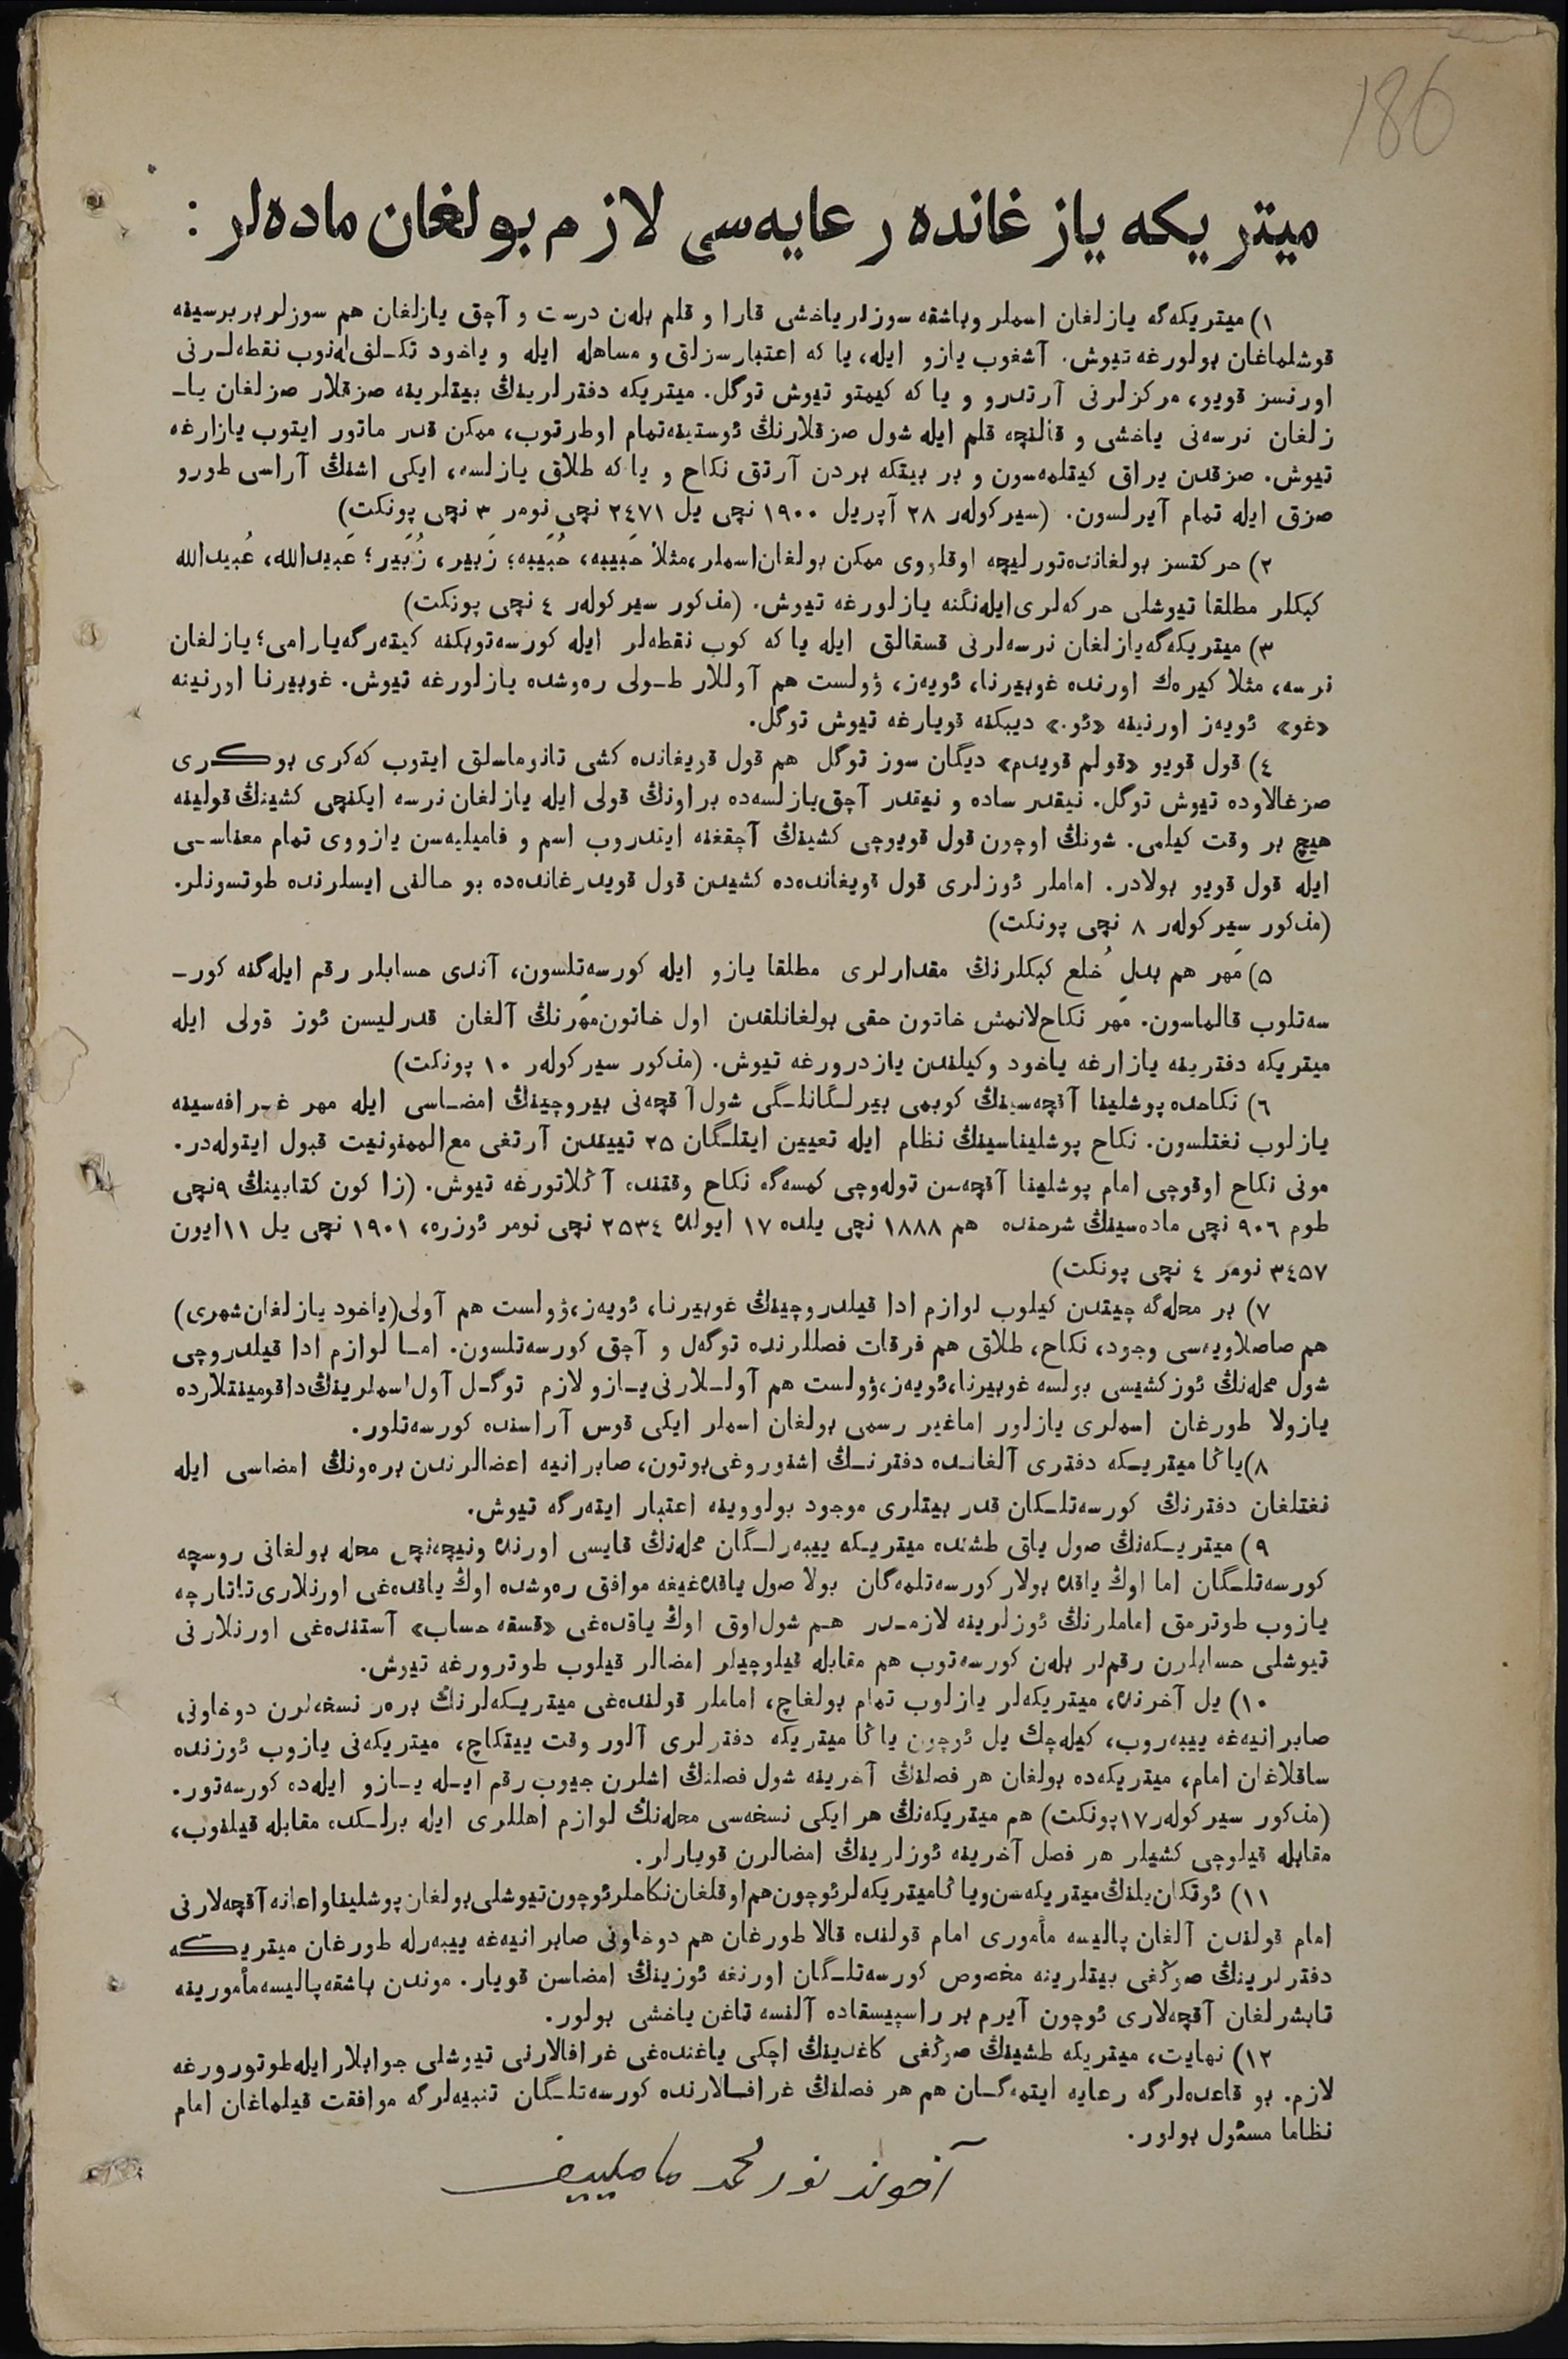 186
ميتريكه يازغانده رعايه‌سى لازم بولغان ماده‌لر :
١) ميتريكه‌گه يازلغان اسملر وباشقه سوزلر ياخشى قارا و قلم بله‌ن درست و آچق يازلغان هم سوزلر بر برسينه
قوشلماغان بولورغه تيوش. آشغوب يازو ايله، يا كه اعتبارسزلق و مساهله ايله و ياخود تكـلف‌له‌نوب نقطه‌لـرنى
اورنسز قويو، مركزلرنى آرتدرو و يا كه كيمتو تيوش توگل. ميتريكه دفترلرينڭ بيتلرينه صزقلار صزلغان ياـ
زلغان نرسه‌نى ياخشى و قالنچه قلم ايله شول صزقلارنڭ ئوستينه‌تمام اوطرتوب، ممكن قدر ماتور ايتوب يازارغه
تيوش. صزقدن يراق كيتلمه‌سون و بر بيتكه بردن آرتق نكاح و يا كه طلاق يازلسه، ايكى اشنڭ آراسى طورو
صزق ايله تمام آيرلسون. (سيركوله‌ر ٢٨ آپريل ١٩٠٠ نچى يل ٢٤٧١ نچى نومر ٣ نچى پونكت)
٢) حركتسز بولغانده‌تورليچه اوقلووى ممكن بولغان‌اسملر،مثلا حَبيبه، حُبَيبه؛ زَبير، زُبَير؛ عَبيدالله، عُبيدالله
كبكلر مطلقا تيوشلى حركه‌لرى‌ايله‌نگنه يازلورغه تيوش. (مذكور سيركوله‌ر ٤ نچى پونكت)
٣) ميتريكه‌گه‌يازلغان نرسه‌لرنى قسقالق ايله يا كه كوب نقطه‌لر ايله كورسه‌توبكنه كيته‌رگه‌يارامى؛ يازلغان
نرسه، مثلا كيره‌ك اورنده غوبيرنا، ئويه‌ز، ۋولست هم آوللار طـولى ره‌وشده يازلورغه تيوش. غوبيرنا اورنينه
«غو» ئويه‌ز اورنينه «ئو.» ديبكنه قويارغه تيوش توگل.
٤) قول قويو «قولم قويدم» ديگان سوز توگل هم قول قويغانده كشى تانوماسلق ايتوب كه‌كرى بوكرى
صزغالاوده تيوش توگل. نيقدر ساده و نيقدر آچق‌يازلسه‌ده براونڭ قولى ايله يازلغان نرسه ايكنچى كشينڭ قولينه
هيچ بر وقت كيلمى. شونڭ اوچون قول قويوچى كشينڭ آچقغنه ايتدروب اسم و فاميليه‌سن يازووى تمام معناسـى
ايله قول قويو بولادر. اماملر ئوزلرى قول قويغانده‌ده كشيدن قول قويدرغانده‌ده بو حالنى ايسلرنده طوتسونلر.
(مذكور سيركوله‌ر ٨ نچى پونكت)
٥) مَهر هم بدلِ خُلع كبكلرنڭ مقدارلرى مطلقا يازو ايله كورسه‌تلسون، آندى حسابلر رقم ايله‌گنه كورـ
سه‌تلوب قالماسون. مَهر نكاح‌لانمش خاتون حقى بولغانلقدن اول خاتون‌مهَرنڭ آلغان قدرليسن ئوز قولى ايله
ميتريكه دفترينه يازارغه ياخود وكيلندن يازدرورغه تيوش. (مذكور سيركوله‌ر ١٠ پونكت)
٦) نكاحده پوشلينا آقچه‌سينڭ كوبمى بيرلـگانلـگى شول آقچه‌نى بيروچينڭ امضـاسى ايله مهر غـرافه‌سينه
يازلوب نغتلسون. نكاح پوشليناسينڭ نظام ايله تعيين ايتلـگان ٢٥ تييندن آرتغى مع‌الممنونيت قبول ايتوله‌در.
مونى نكاح اوقوچى امام پوشلينا آقچه‌سن توله‌وچى كمسه‌گه نكاح وقتنده آڭلاتورغه تيوش. (زاكون كتابينڭ ٩نچى
طوم ٩٠٦ نچى ماده‌سينڭ شرحنده هم ١٨٨٨ نچى يلده ١٧ ايولده ٢٥٣٤ نچى نومر ئوزره، ١٩٠١ نچى يل ١١ايون
٣٤٥٧ نومر ٤ نچى پونكت)
٧) بر محله‌گه چيتدن كيلوب لوازم ادا قيلدروچينڭ غوبيرنا، ئويه‌ز،ۋولست هم آولى(ياخود يازلغان‌شهرى)
هم صاصلاويه‌سى وجود، نكاح، طلاق هم فرقات فصللرنده توگه‌ل و آچق كورسه‌تلسون. امـا لوازم ادا قيلدروچى
شول محله‌نڭ ئوزكشيسى بولسه غوبيرنا،ئويه‌ز،ۋولست هم آولـلارنى‌يـازو لازم توگـل آول‌اسملرينڭ‌داقومينتلارده
يازولا طورغان اسملرى يازلور اماغير رسمى بولغان اسملر ايكى قوس آراسنده كورسه‌تلور.
٨)ياڭا ميتريـكه دفترى آلغانـده دفترنـڭ اشنوروغى‌بوتون، صابرانيه اعضالرندن بره‌ونڭ امضاسى ايله
نغتلغان دفترنڭ كورسه‌تلـكان قدر بيتلرى موجود بولووينه اعتبار ايته‌رگه تيوش.
٩) ميتريـكه‌نڭ صول ياق طشنده ميتريـكه ييبه‌رلـگان محله‌نڭ قايسى اورنده ونيچه‌نچى محله بولغانى روسچه
كورسه‌تلـگان اما اوڭ ياقده بولار كورسه‌تلمه‌گان بولا صول ياقده‌غيغه موافق ره‌وشده اوڭ ياقده‌غى اورنلارى‌تاتارچه
يازوب طوترمق اماملرنڭ ئوزلرينه لازمـدر هـم شول‌اوق اوڭ ياقده‌غى «قسقه حساب» آستنده‌غى اورنلارنى
تيوشلى حسابلرن رقم‌لر بله‌ن كورسه‌توب هم مقابله قيلوچيلر امضالر قيلوب طوترورغه تيوش.
١٠) يل آخرنده، ميتريكه‌لر يازلوب تمام بولغاچ، اماملر قولنده‌غى ميتريـكه‌لرنڭ بره‌ر نسخه‌لرن دوخاونى
صابرانيه‌غه ييبه‌روب، كيله‌چك يل ئوچون ياڭا ميتريكه دفترلرى آلور وقت ييتكاچ، ميتريكه‌نى يازوب ئوزنده
ساقلاغان امام، ميتريكه‌ده بولغان هر فصلنڭ آخرينه شول فصلنڭ اشلرن جيوب رقم ايـله يـازو ايله‌ده كورسه‌تور.
(مذكور سيركوله‌ر ١٧پونكت) هم ميتريكه‌نڭ هر ايكى نسخه‌سى محله‌نڭ لوازم اهللرى ايله برلـكده مقابله قيلنوب،
مقابله قيلوچى كشيلر هر فصل آخرينه ئوزلرينڭ امضالرن قويارلر.
١١) ئوتكان‌يلنڭ‌ميتريكه‌سن‌وياڭاميتريكه‌لرئوچون‌هم‌اوقلغان‌نكاحلرئوچون‌تيوشلى‌بولغان‌پوشليناواعانه‌آقچه‌لارنى
امام قولندن آلغان پاليسه مأمورى امام قولنده قالا طورغان هم دوخاونى صابرانيه‌غه ييبه‌رله طورغان ميتريكه
دفترلرينڭ صوڭغى بيتلرينه مخصوص كورسه‌تلـگان اورنغه ئوزينڭ امضاسن قويار. موندن باشقه‌پاليسه‌مأمورينه
تابشرلغان آقچه‌لارى ئوچون آيرم بر راسپيسقاده آلنسه تاغن ياخشى بولور.
١٢) نهايت، ميتريكه طشينڭ صوڭغى كاغدينڭ اچكى ياغنده‌غى غرافالارنى تيوشلى جوابلار ايله‌طوتورورغه
لازم. بو قاعده‌لرگه رعايه ايتمه‌گـان هم هر فصلنڭ غرافـالارنده كورسه‌تلـگان تنبيه‌لرگه موافقت قيلماغان امام
نظاما مسئول بولور.
آخوند نورمحمد مامليييف